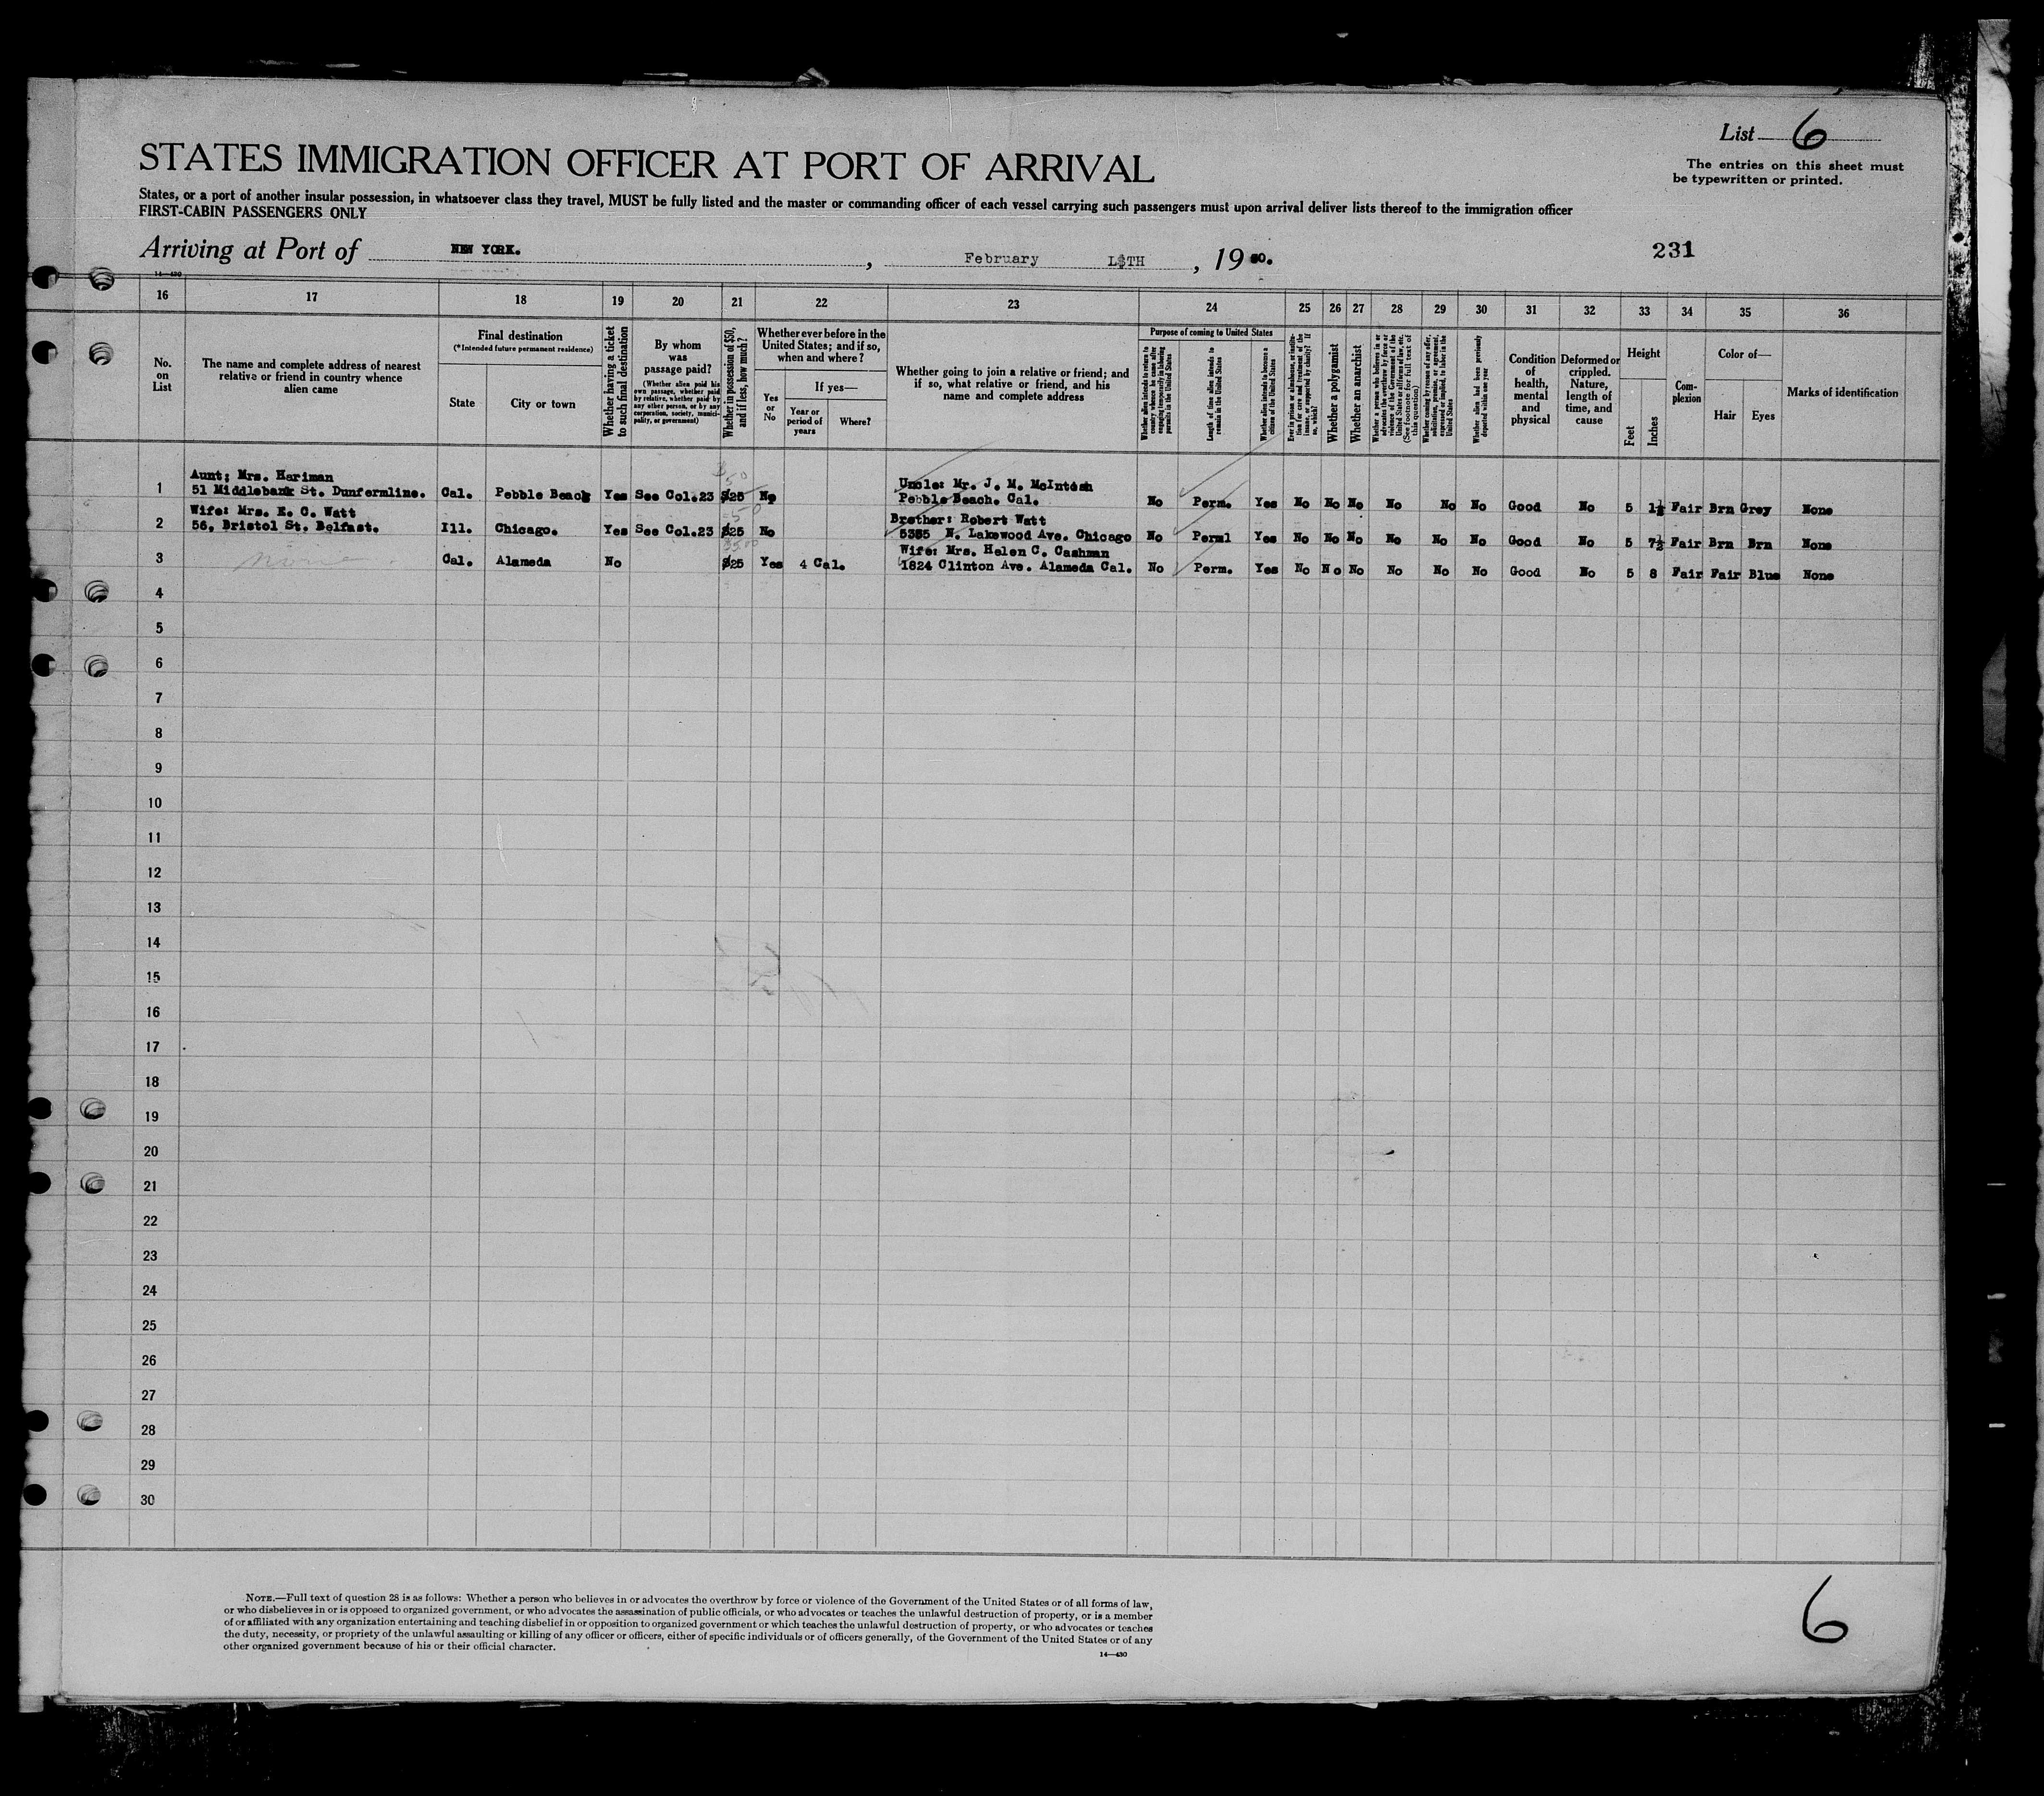 List 6
STATES IMMIGRATION OFFICER AT PORT OF ARRIVAL
The entries on this sheet must
be typewritten or printed.
States, or a port of another insular possession, in whatsoever class they travel, MUST be fully listed and the master or commanding officer of each vessel carrying such passengers must upon arrival deliver lists thereof to the immigration officer
FIRST-CABIN PASSENGERS ONLY
Arriving at Port of NEW YORK. , February , 19
231
14—430
16 17 18 19 20 21 22 23 24 25 26 27 28 29 30 31 32 33 34 35 36
No.
on
List
The name and complete address of nearest
relative or friend in country whence
alien came
Final destination
(*Intended future permanent residence)
State
City or town
Whether having a ticket
to such final destination
By whom
was
passage paid?
(Whether alien paid his
own passage, whether paid
by relative, whether paid by
any other person, or by any
corporation, society, munici-
pality, or government)
Whether in possession of $50,
and if less, how much?
Whether ever before in the
United States; and if so,
when and where?
Yes
or
No
If yes—
Year or
period of
years
Where?
Whether going to join a relative or friend; and
if so, what relative or friend, and his
name and complete address
Purpose of coming to United States
Whether alien intends to return to
country whence he came after
engaging temporarily in laboring
pursuits in the United States
Length of time alien intends to
remain in the United States
Whether alien intends to become a
citizen of the United States
Ever in prison or almshouse, or institu-
tion for care and treatment of the
insane, or supported by charity? If
so, which?
Whether a polygamist
Whether an anarchist
Whether a person who believes in or
advocates the overthrow by force or
violence of the Government of the
United States or all forms of law, etc.
(See footnote for full text of
this question)
Whether coming by reason of any offer,
solicitation, promise, or agreement,
expressed or implied, to labor in the
United States
Whether alien had been previously
deported within one year
Condition
of
health,
mental
and
physical
Deformed or
crippled.
Nature,
length of
time, and
cause
Height
Feet
Inches
Com-
plexion
Color of—
Hair
Eyes
Marks of identification
Aunt; Mrs. Hariman
Uncle: Mr. J. M. McIntosh
1 51 Middlebank St. Dunfermline. Cal. Pebble Beach Yes See Col.23 $25 No Pebble Beach. Cal. No Perm. Yes No No No No No No Good No 5 1½ Fair Brn Grey None
Wife: Mrs. E. C. Watt
Brother: Robert Watt
2 56, Bristol St. Belfast. Ill. Chicago. Yes See Col.23 $25 No 5355 N. Lakewood Ave. Chicago No Perml Yes No No No No No No Good No 5 7½ Fair Brn Brn None
Wife: Mrs. Helen C. Cashman
3 none Cal. Alameda No $25 Yes 4 Cal. 1824 Clinton Ave. Alameda Cal. No Perm. Yes No No No No No No Good No 5 8 Fair Fair Blue None
4
5
6
7
8
9
10
11
12
13
14
15
16
17
18
19
20
21
22
23
24
25
26
27
28
29
30
NOTE.—Full text of question 28 is as follows: Whether a person who believes in or advocates the overthrow by force or violence of the Government of the United States or of all forms of law,
or who disbelieves in or is opposed to organized government, or who advocates the assassination of public officials, or who advocates or teaches the unlawful destruction of property, or is a member
of or affiliated with any organization entertaining and teaching disbelief in or opposition to organized government or which teaches the unlawful destruction of property, or who advocates or teaches
the duty, necessity, or propriety of the unlawful assaulting or killing of any officer or officers, either of specific individuals or of officers generally, of the Government of the United States or of any
other organized government because of his or their official character.
14—430
6